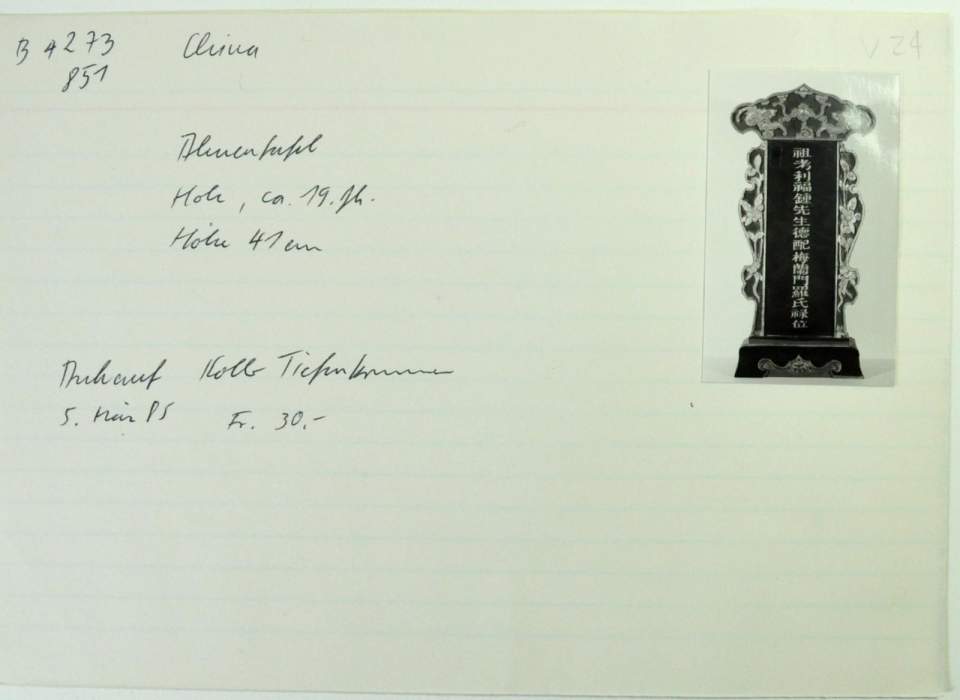 B 4273 China V 24
851
Ahnentafel
Holz, ca. 19. Jh.
Höhe 41 cm
Ankauf Koller Tiefenbrunnen
5. März 85 Fr. 30.-
祖考利福鍾先生德配梅蘭門羅氏祿位